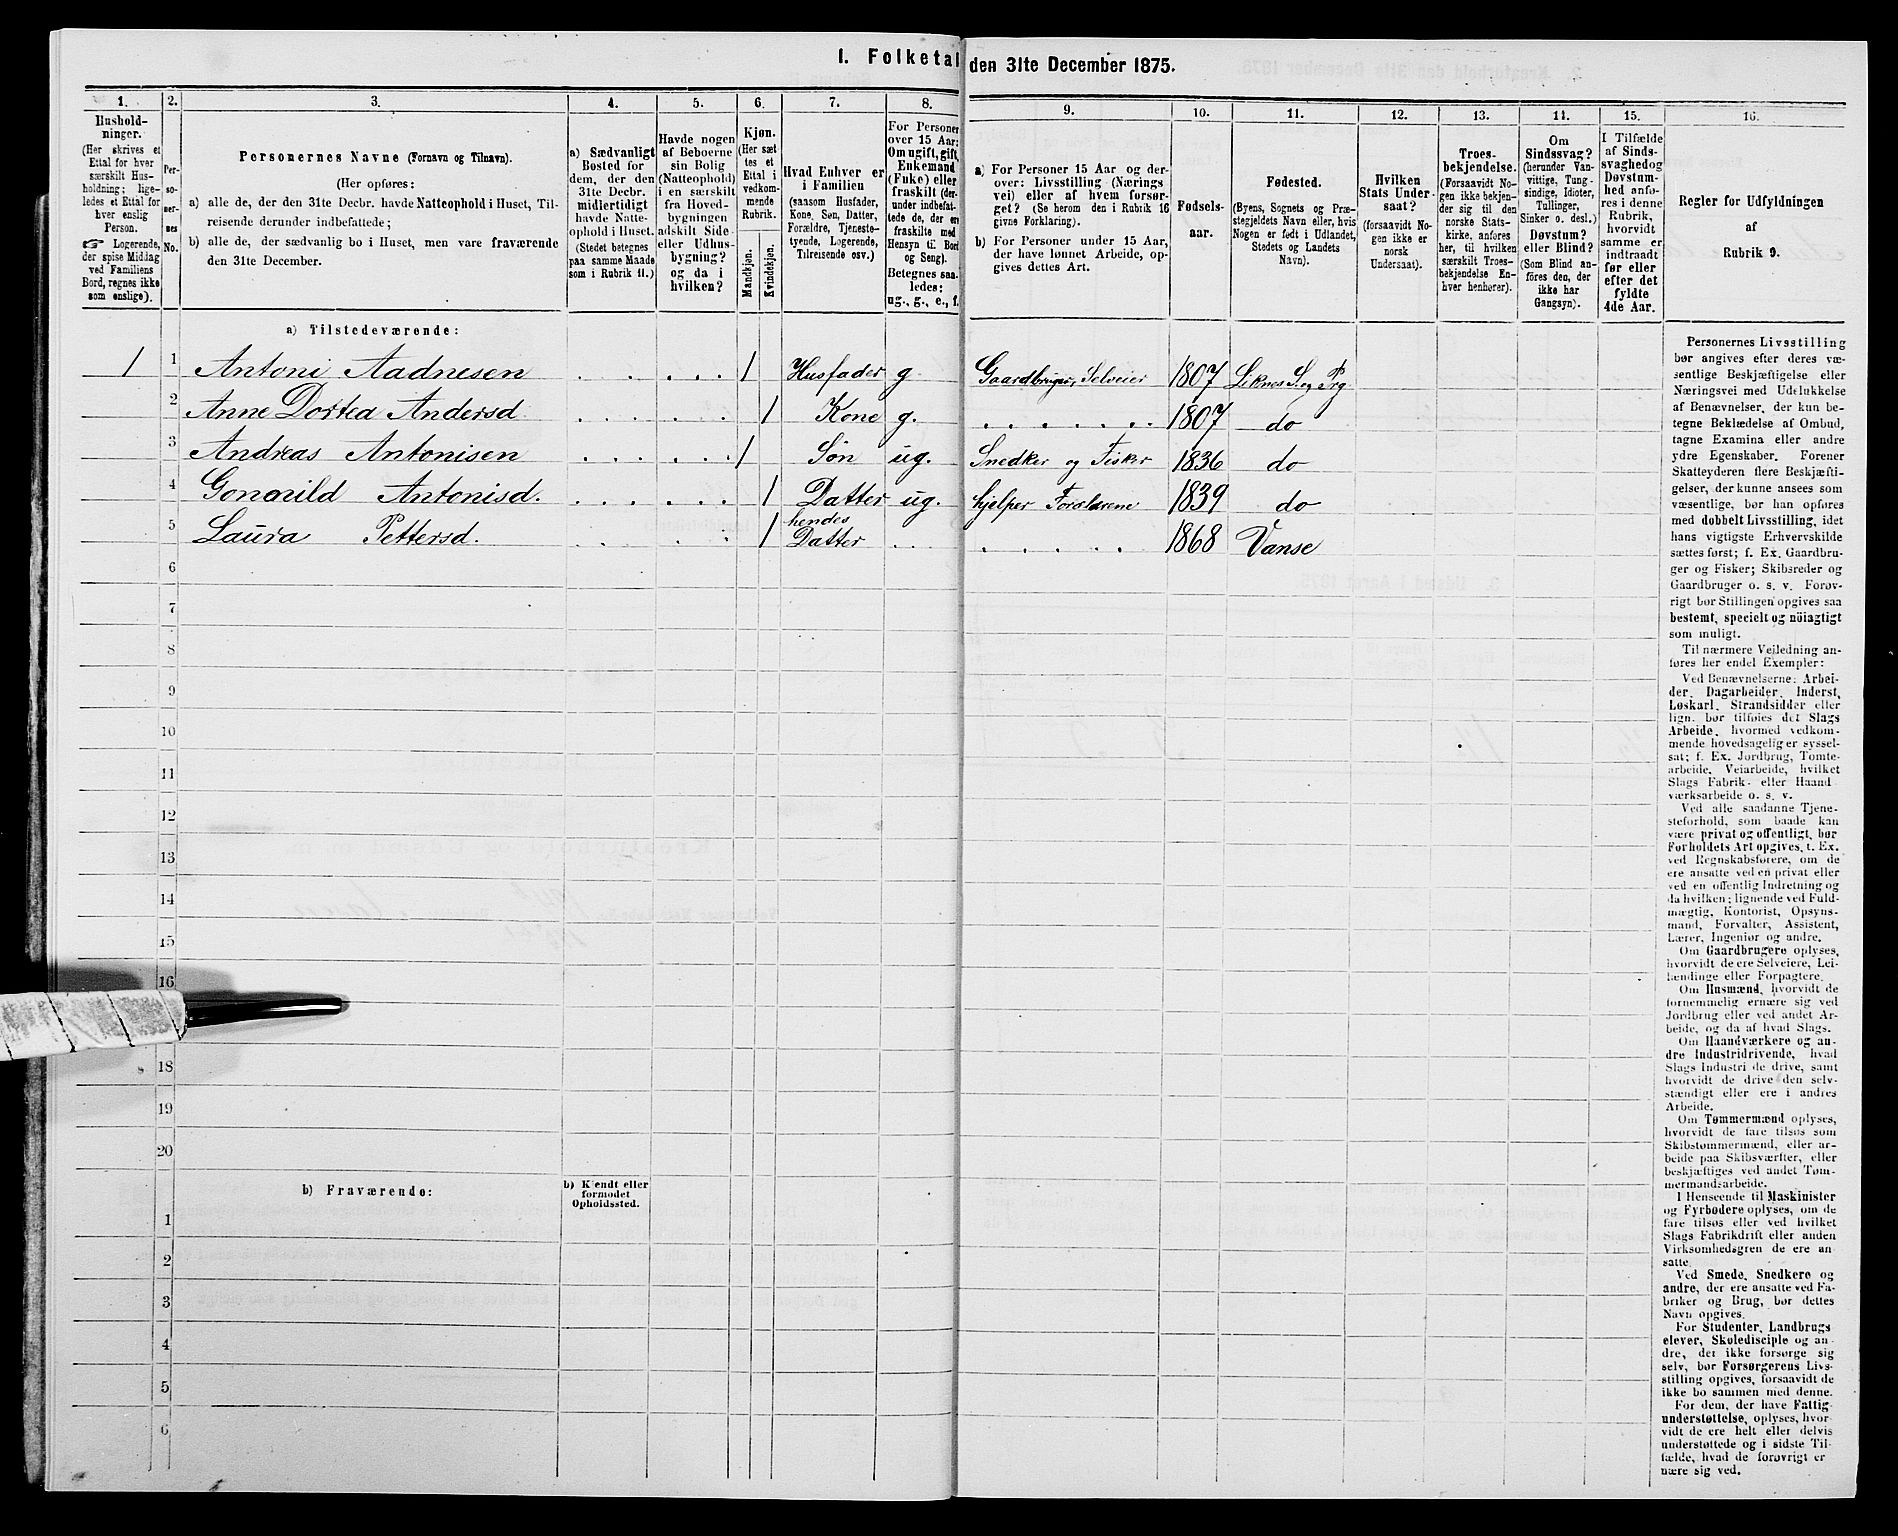 1. Folketal den 31te December 1875.
1. 2. 3. 4. 5. 6. 7. 8. 9. 10. 11. 12. 13. 14. 15. 16.
Hushold-
ninger.
(Her skrives et
Ettal for hver
særskilt Hus-
holdning; lige-
ledes et Ettal for
hver enslig
Person.
☞ Logerende,
der spise Middag
ved Familiens
Bord, regnes ikke
som enslige).
Per-
so-
ner-
nes
No.
Personernes Navne (Fornavn og Tilnavn).
(Her opføres:
a) alle de, der den 31te Decbr. havde Natteophold i Huset, Til-
reisende derunder indbefattede;
b) alle de, der sædvanlig bo i Huset, men vare fraværende
den 31te December.
a) Sædvanligt
Bosted for
dem, der den
31te Decbr.
midlertidigt
havde Natte-
ophold i Huset.
(Stedet betegnes
paa samme Maade
som i Rubrik 11.)
Havde nogen
af Beboerne
sin Bolig
(Natteophold)
i en særskilt
fra Hoved-
bygningen
adskilt Side-
eller Udhus-
bygning?
og da i
hvilken?
Kjøn.
(Her sæt
tes et
Ettal i
vedkom-
mende
Rubrik.
Mandkjøn.
Kvindekjøn.
Hvad Enhver er
i Familien
(saasom Husfader,
Kone, Søn, Datter,
Forældre, Tjeneste-
tyende, Logerende,
Tilreisende osv.)
For Personer
over 15 Aar:
Om ugift, gift,
Enkemand
(Fuke) eller
fraskilt (der-
under indbefat-
tede de, der ere
fraskilte med
Hensyn til Bord
og Seng).
Betegnes saa-
ledes:
ug., g., e., f.
a) For Personer 15 Aar og der-
over: Livsstilling (Nærings
vei) eller af hvem forsør-
get? (Se herom den i Rubrik 16
givne Forklaring).
b) For Personer under 15 Aar,
der have lønnet Arbeide, op-
gives dettes Art.
Fødsels-
aar.
Fødested.
(Byens, Sognets og Præ-
stegjeldets Navn eller, hvis
Nogen er født i Udlandet,
Stedets og Landets
Navn).
Hvilken
Stats Under-
saat?
(forsaavidt No-
gen ikke er
norsk
Undersaat).
Troes-
bekjendelse.
(Forsaavidt No-
gen ikke bekjen-
der sig til den
norske Stats-
kirke, anføres
her, til hvilken
særskilt Troes-
bekjendelse En-
hver henhører).
Om
Sindssvag?
(herunder Van-
vittige, Tung-
sindige, Idioter,
Tullinger,
Sinker o. desl.)
Døvstum?
eller Blind?
(Som Blind an-
føres den, der
ikke har
Gangsyn).
I Tilfælde
af Sinds-
svaghed og
Døvstum-
hed anfø-
res i denne
Rubrik,
hvorvidt
samme er
indtraadt
før eller
efter det
fyldte
4de Aar.
Regler for Udfyldningen
af
Rubrik 9.
a) Tilstedeværende:
1 1 Antoni Aadnesen 1 Husfader g. Gaardbruger, Selveier 1807 Liknes S. og Prg
2 Anne Dortea Andersd. 1 Kone g. 1807 do
3 Andreas Antonisen 1 Søn ug. Snedker og Fisker 1836 do
4 Gonorild Antonisd. 1 Datter ug. hjelper Forældrene 1839 do
5 Laura Pettersd. 1 hendes
Datter 1868 Vanse
6
7
8
9
10
11
12
13
14
15
16
18
19
20
b) Fraværende:
b) Kjendt eller
formodet
Opholdssted.
1
2
3
4
5
6
Personernes Livsstilling
bør angives efter deres væ-
sentlige Beskjæftigelse eller
Næringsvei med Udelukkelse
af Benævnelser, der kun be-
tegne Beklædelse af Ombud,
tagne Examina eller andre
ydre Egenskaber. Forener
Skatteyderen flere Beskjæfti-
gelser, der kunne ansees som
væsentlige, bør han opføres
med dobbelt Livsstilling, idet
hans vigtigste Erhvervskilde
sættes først; f. Ex. Gaardbru-
ger og Fisker; Skibsreder og
Gaardbruger o. s. v. Forøv-
rigt bør Stillingen opgives saa
bestemt, specielt og nöiagtigt
som muligt.
Til nærmere Veiledning an-
føres her endel Exempler:
Ved Benævnelserne: Arbei-
der, Dagarbeider, Inderst,
Løskarl, Strandsidder eller
lign. bør tilføies det Slags
Arbeide, hvormed vedkom-
mende hovedsagelig er syssel-
sat; f. Ex. Jordbrug, Tomte-
arbeide, Veiarbeide, hvilket
Slags Fabrik- eller Haand
værksarbeide o. s. v.
Ved alle saadanne Tjene-
steforhold, som baade kan
være privat og offentligt, bør
Forholdets Art opgives, t. Ex.
ved Regnskabsførere, om de
ere ansatte ved en privat eller
ved en offentlig Indretning og
da hvilken; lignende ved Fuld-
mægtig, Kontorist, Opsyns-
mand, Forvalter, Assistent,
Lærer, Ingeniør og andre.
Om Gaardbrugere oplyses,
hvorvidt de ere Selveiere, Lei-
lændinge eller Forpagtere.
Om Husmænd, hvorvidt de
fornemmelig ernære sig ved
Jordbrug eller ved andet Ar-
beide, og da af hvad Slags.
Om Haandværkere og an-
dre Industridrivende, hvad
Slags Industri de drive, samt
hvorvidt de drive den selv-
stændigt eller ere i andres
Arbeide.
Om Tømmermænd oplyses,
hvorvidt de fare tilsøs som
Skibstømmermænd, eller ar-
beide paa Skibsværfter, eller
beskjæftiges ved andet Tøm-
mermandsarbeide.
I Henseende til Maskinister
og Fyrbødere oplyses, om de
fare tilsøs eller ved hvilket
Slags Fabrikdrift eller anden
Virksomhedsgren de ere an-
satte.
Ved Smede, Snedkere og
andre, der ere ansatte ved Fa-
briker og Brug, bør dettes
Navn opgives.
For Studenter, Landbrugs
elever, Skoledisciple og an-
dre, der ikke forsørge sig
selv, bør Forsørgerens Livs-
stilling opgives, forsaavidt de
ikke bo sammen med denne.
For dem, der have Fattig
understøttelse, oplyses, hvor-
vidt de ere helt eller delvis
understøttede og i sidste Til-
fælde, hvad de forøvrigt er
nære sig ved.